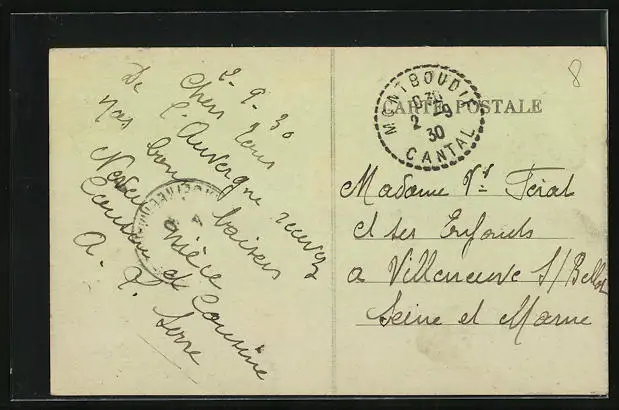 8
CARTE POSTALE
MONTBOUDIF
2 -9
30
CANTAL
2-9-30
Chers tous
De l'Auvergne recevez
nos bons baisers
Neveu nièce
Cousin et Cousine
A. Serre
Madame Vve Féral
et ses Enfants
a Villeneuve S/Bellot
Seine et Marne